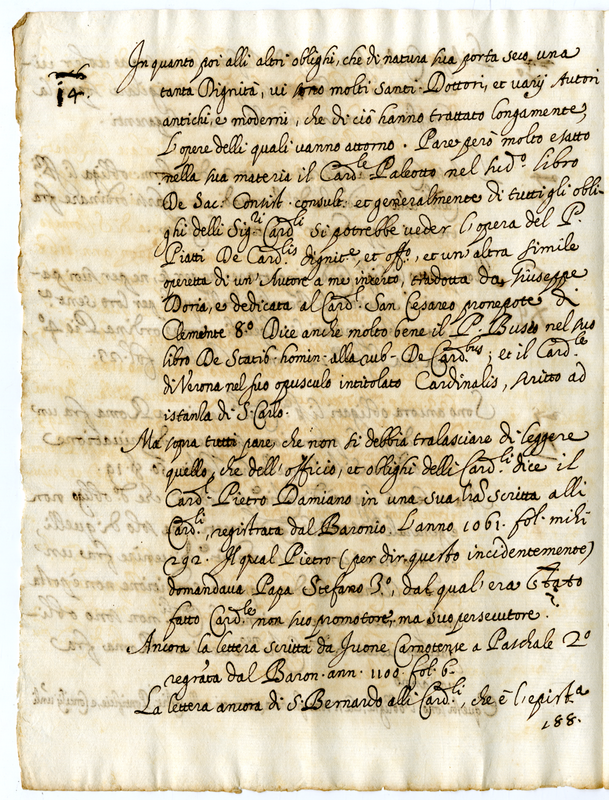 14.
In quanto poi alli altri oblighi, che di natura sua porta seco una
tanta Dignità, vi sono molti Santi Dottori, et varij Autori
antichi, e moderni, che di ciò hanno trattato longamente,
l'opere delli quali vanno attorno. Pare però molto esatto
nella sua materia il Card.le Paleotto nel sud.o libro
De Sac: Consist. consult: et generalmente di tutti gli obli-
ghi delli Sig.ri Card.li si potrebbe veder l'opera del P.
Piatti De Card.lis dignit.e, et off.o, et un'altra simile
operetta di un'Autore a me incerto, tradotta da Giuseppe
Doria, e dedicata al Card.l San Cesareo pronepote di
Clemente 8.o Dice anche molto bene il P. Buseo nel suo
libro De Statib. homin. alla rub. De Card.bus; et il Card.le
di Verona nel suo opusculo intitolato Cardinalis, scritto ad
istanza di S. Carlo.
Ma sopra tutti pare, che non si debbia tralasciare di leggere
quello, che dell'officio, et oblighi delli Card.li dice il
Card.l Pietro Damiano in una sua l'ra scritta alli
Card.li, registrata dal Baronio l'anno 1061. fol. mihi
292. Il qual Pietro (per dir questo incidentemente)
domandava Papa Stefano 3.o, dal qual'era stato
fatto Card.le, non suo promotore, ma suo persecutore.
Ancora la lettera scritta da Juone Carnotense a Paschale 2.o
reg'rata dal Baron. ann. 1100. fol. 6.
La lettera ancora di S. Bernardo alli Card.li, che è l'epist.a
188.